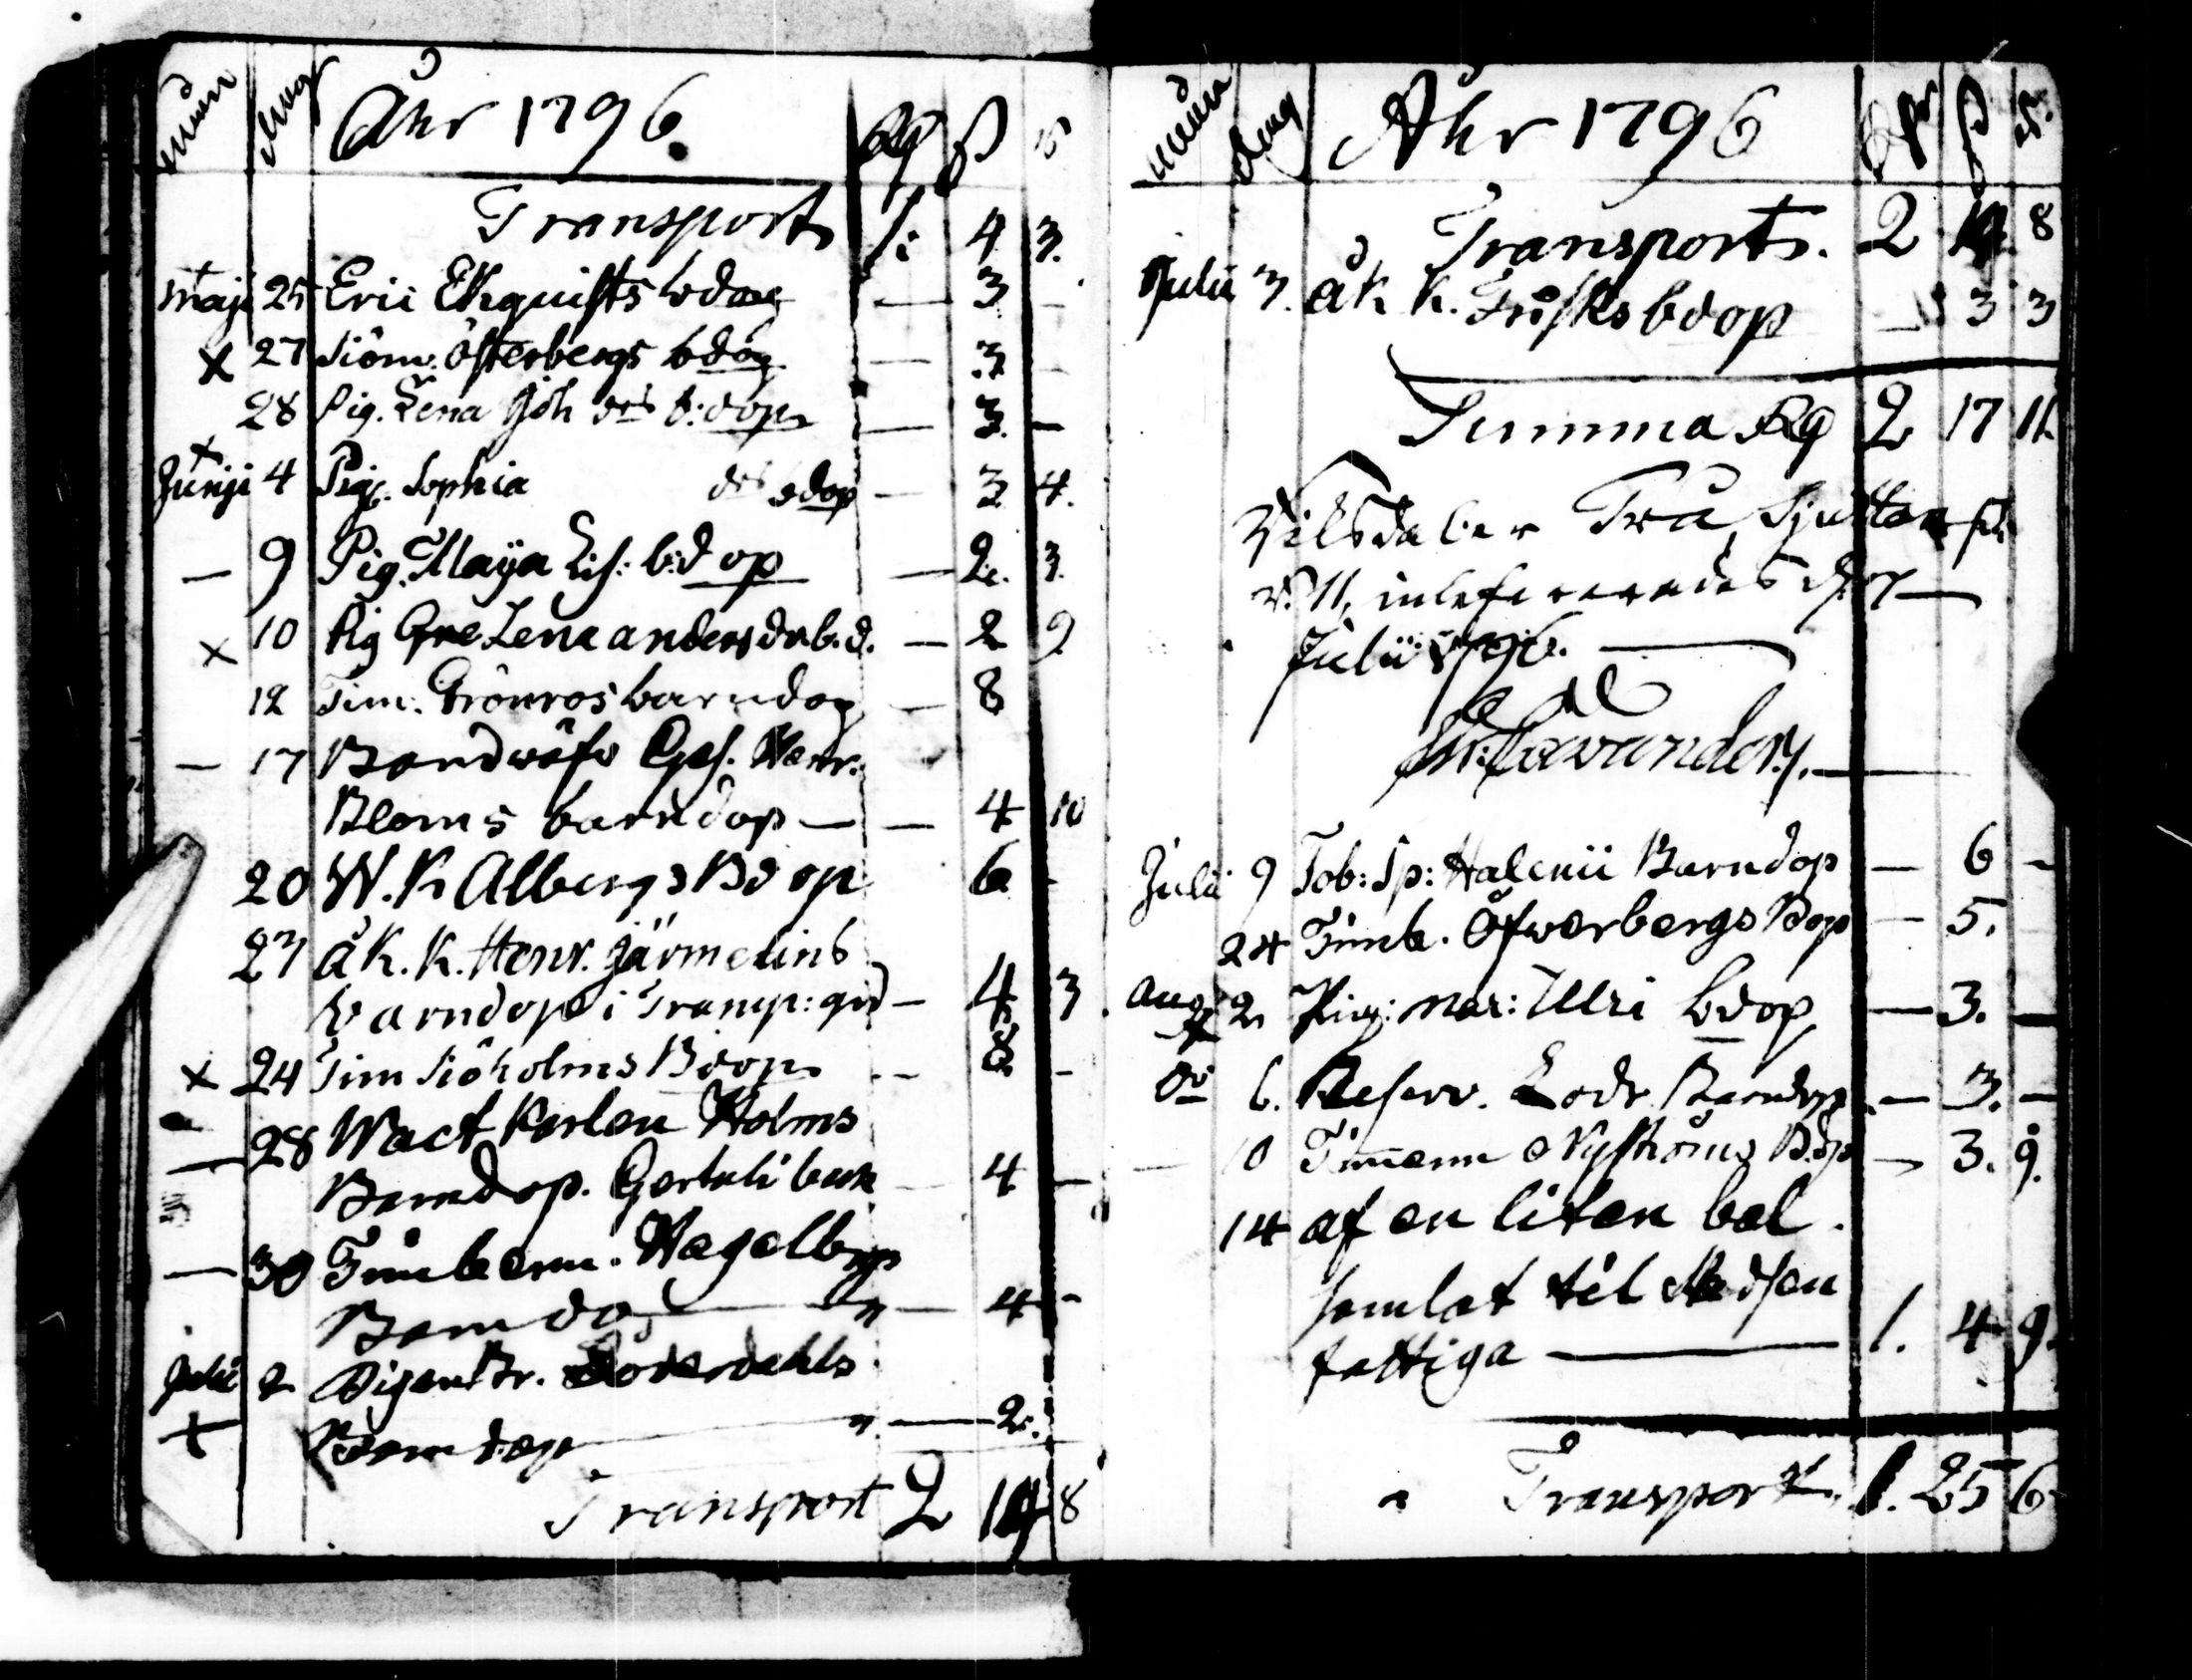 Månn Dag Åhr 1796. Rg ß r
Transport 1: 4 3.
Maji 25 Eric Ekquists bdop — 3 —
x 27 Siöm. Österbergs bdop — 3 —
28 Pig. Lena Joh drs b:dop — 3. —
x
Junji 4 Pig. Sophia drs bdop — 3 4.
— 9 Pig. Maÿa Lis: b:d op — 2. 3.
x 10 Pig Gre Lena anders dr b. d. — 2 9
12 Tim: Grönros barndop — 8
— 17 Bandwäfv Ges. Henr.
Bloms barndop — — 4 10
20 W. K Albergs Bd op 6 -
23 åk. K. Henr. Järmelins
barndop i Tramp: grd — 4 3.
x 24 Tim Siöholms Bdop - 8. -
— 28 Wact Karlen Holms
Barndop. — 4 —
— 30 Timberm. Hagelbergs
Barndo — " — 4 -
Julii 2 Söderdahls
+ Barndop — " — 2.
Transport 2 14 8
Månn dag Åhr 1796 Rg ß r.
Transport. 2 14 8
Julii 3. åk k. Frisks bdop — 3 3
Summa Rg 2 17 11.
Riksdaler Två, Sjutton sk.
r. 11, inlefererades d. 7 —
Julii 1796. —
Julii 9 Tob: Sp: Halenii Barndop — 6 -
24 Timb. Öfwerbergs Bdop — 5.
Aug x 2 Pig: Mar: Ulri bdop — 3. —
do 6. Reserv. Lodr Barndop — 3. —
— 10 Timerm Nyströms Bdop — 3. 9.
14 af en liten bal.
samlat til Stadsen
fattiga — 1. 4 9.
Transport. 1. 25 6